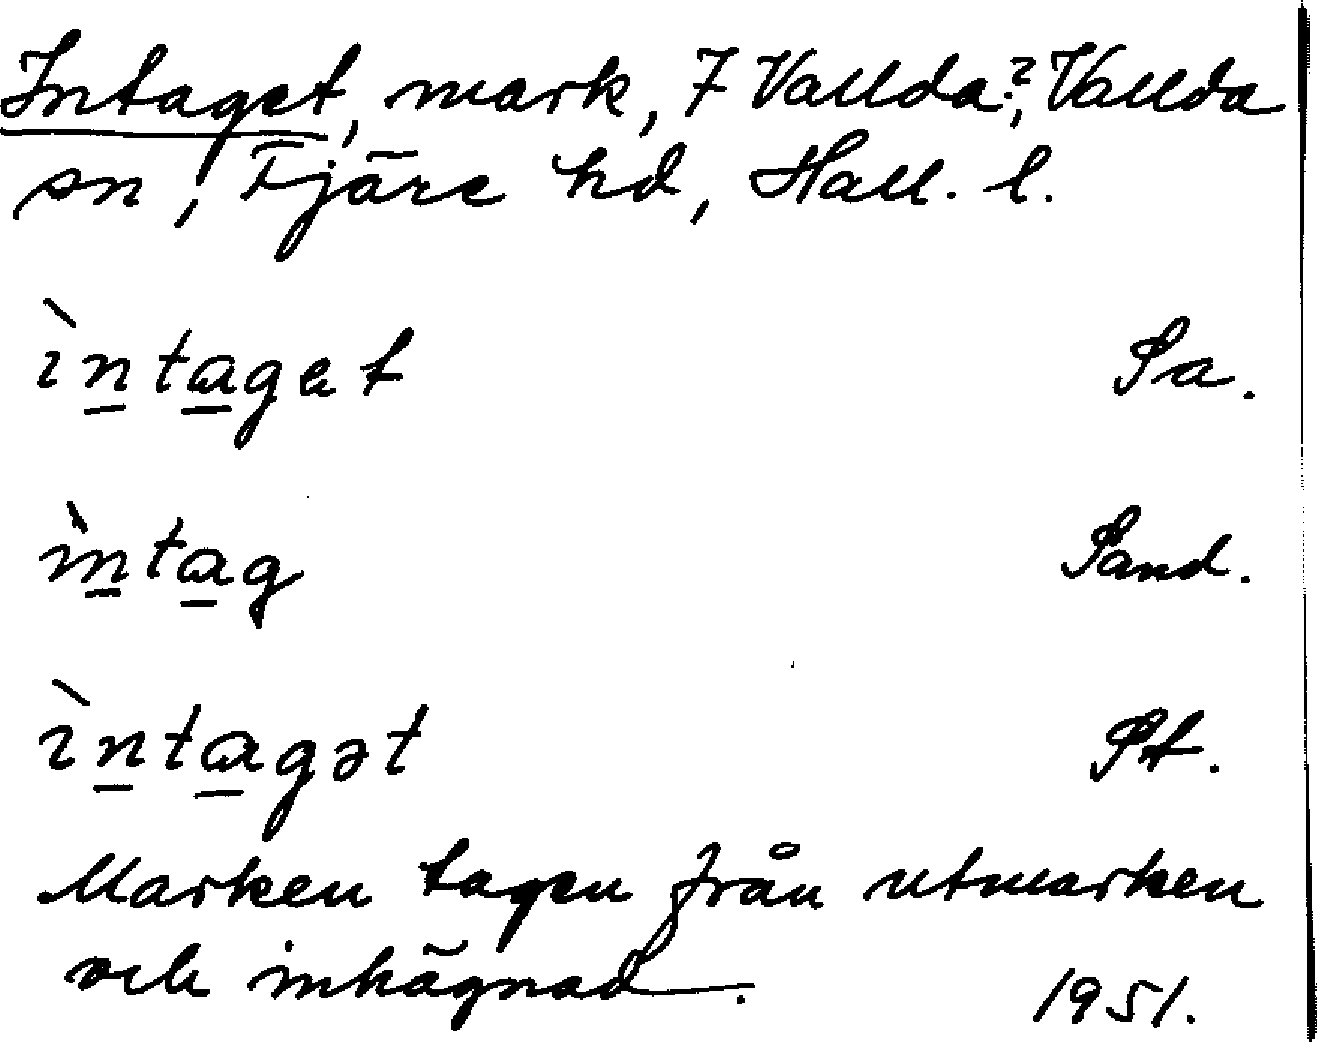 Intaget, mark, 7 Vallda?, Vallda
sn, Fjäre hd, Hall. l.
ìntaget Sa.
ìntag Sand.
ìntagət St.
Marken tagen från utmarken
och inhägnad. 1951.